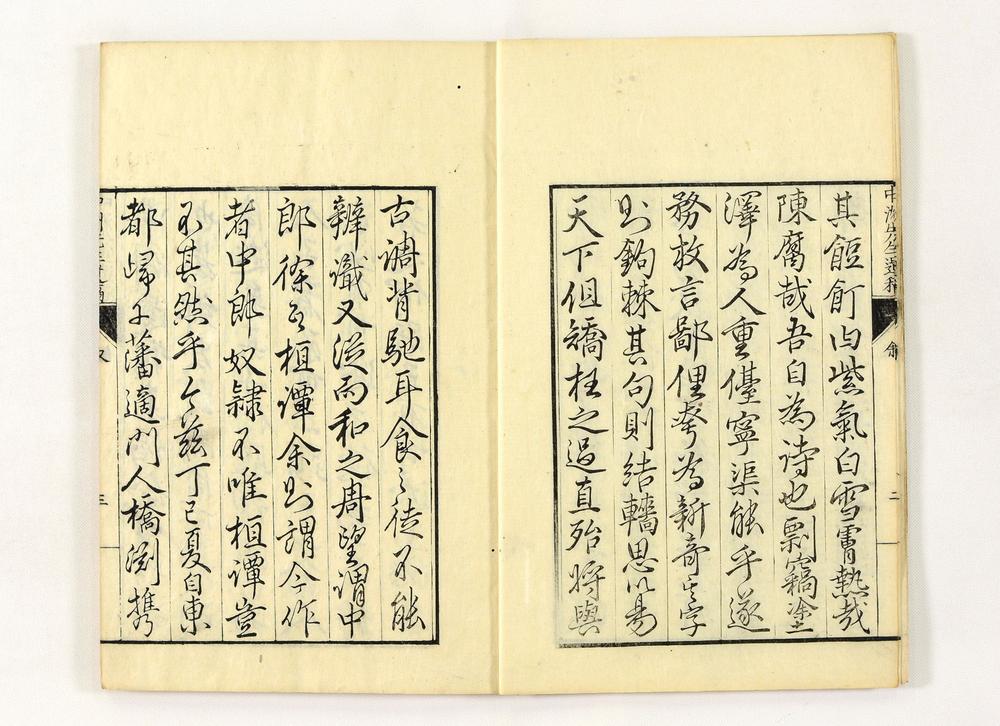 其餖飣白紫氣白雪胥熟哉
陳腐哉吾自為詩也剽竊塗
澤為人重儓寧渠能乎遂
務放言鄙俚誇為新奇其字
則鉤棘其句則結轖思以易
天下但矯枉之過直殆將與
古調背馳耳食之徒不能
辨識又從而和之周望謂中
郎徐云桓譚余則謂今作
者中郎奴隸不唯桓譚豈
不其然乎今茲丁巳夏自東
都歸于藩適門人橋渕携
二
三